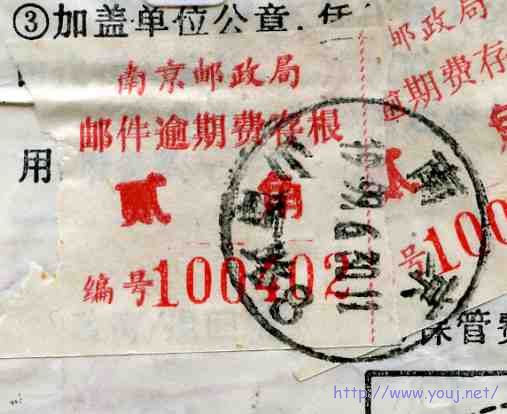 ③加盖单位公章.任
南京邮政局
邮件逾期费存根
贰 角
编号100402
邮政局
逾期费存
贰 角
号100
用
南京
保管费
http://www.youj.net/